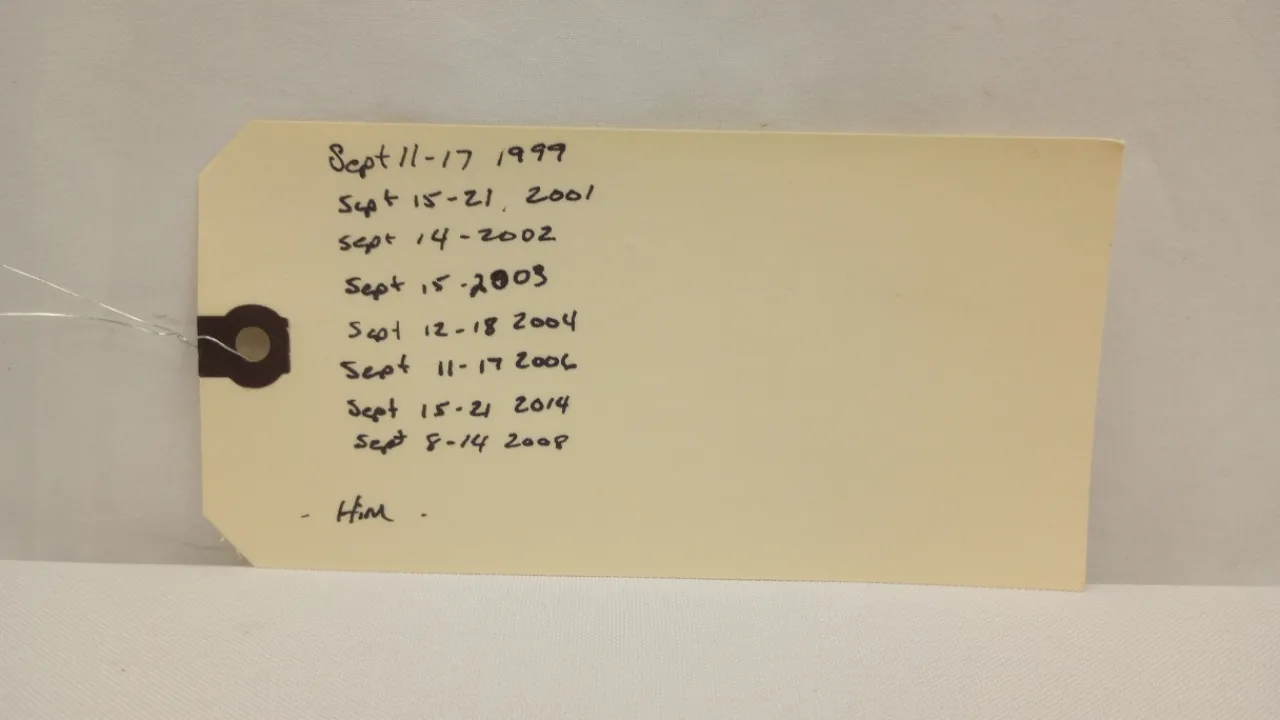 Sept 11-17 1999
Sept 15-21, 2001
Sept 14-2002
Sept 15-2003
Sept 12-18 2004
Sept 11-17 2006
Sept 15-21 2014
Sept 8-14 2008
- Him -